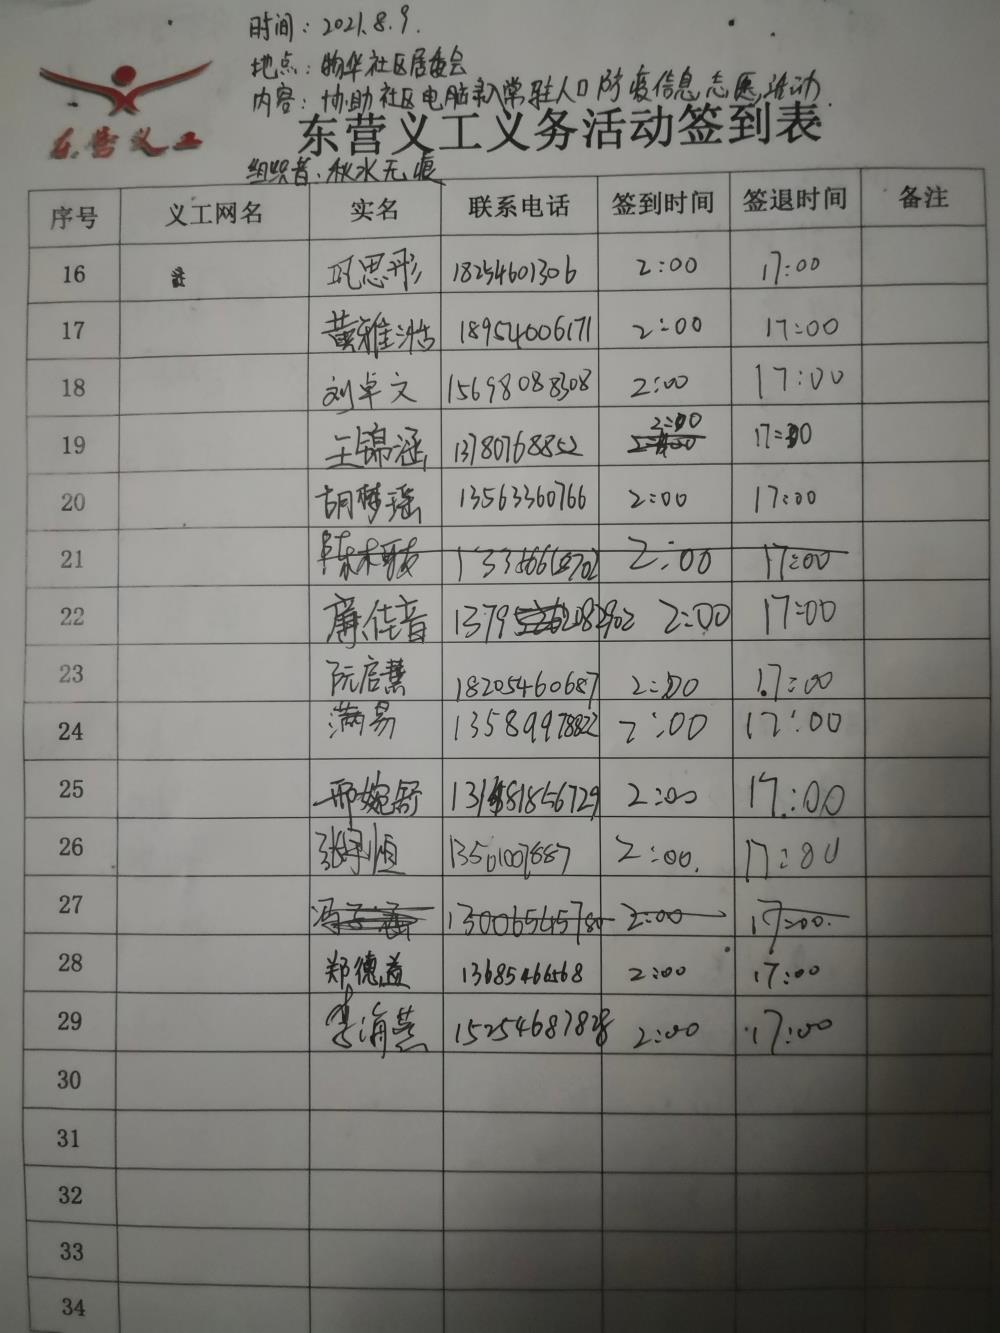 时间：2021.8.9.
地点：物华社区居委会
内容：协助社区电脑录入常驻人口防疫信息志愿活动.
东营义工
东营义工义务活动签到表
组织者：秋水无痕
序号 义工网名 实名 联系电话 签到时间 签退时间 备注
16 巩思彤 18254601306 2:00 17:00
17 黄雅浩 18954006171 2:00 17:00
18 刘卓文 15698088308 2:00 17:00
19 王锦涵 13780768852 2:00 17:00
20 胡梦瑶 13563360766 2:00 17:00
21 2:00 17:00
22 佳音 2:00 17:00
23 阮启慧 18205460687 2:00 17:00
24 满易 13589978822 2:00 17:00
25 邢婉舒 2:00 17:00
26 2:00. 17:00
27 13006545780 2:00 17:00.
28 郑德益 13685466568 2:00 17:00
29 李海燕 15254687828 2:00 17:00
30
31
32
33
34